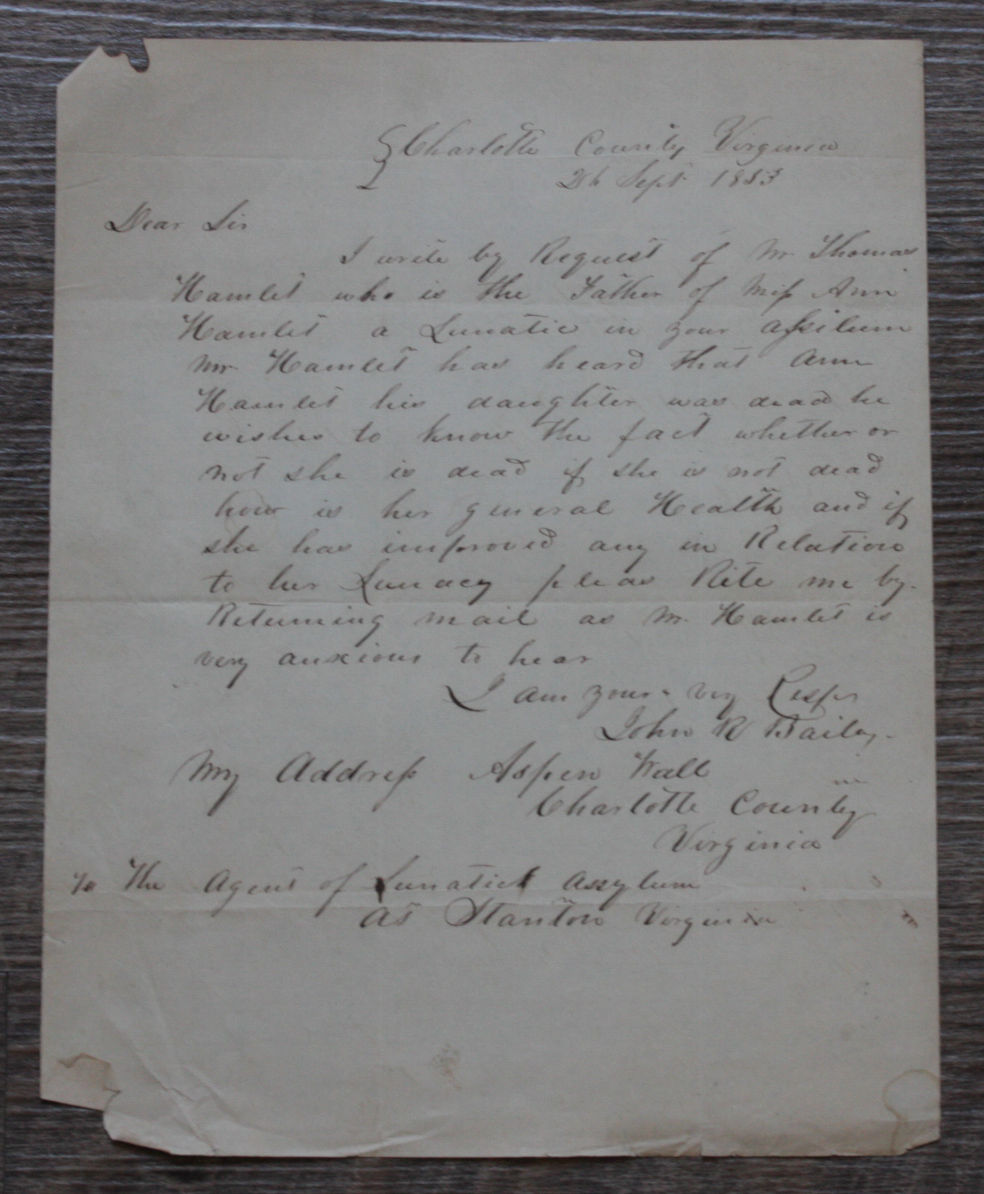 Charlotte County Virginia
26 Sept 1853
Dear Sir
I write by Request of Mr Thomas
Hamlet who is the Father of Miss Ann
Hamlet a Lunatic in your assilum
Mr Hamlet has heard that Ann
Hamlet his daughter was dead he
wishes to know the fact whether or
not she is dead if she is not dead
how is her general Health and if
she has improved any in Relation
to her Lunacy pleas Rite me by
Returning mail as Mr. Hamlet is
very anxious to hear
I am yours very Respr
John R Bailey
My Address Aspen Wall
Charlotte County
Virginia
To The Agent of Lunatick Assylum
at Stanton Virginia